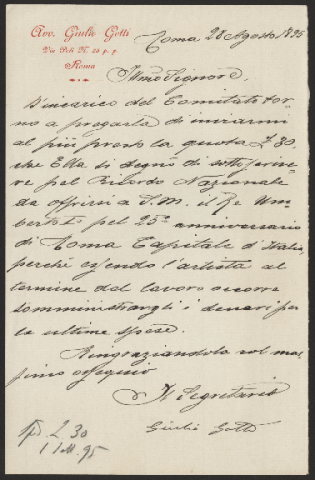 Avv. Giulio Gotti
Via Poli N. 25 p. p.
Roma
Roma 28 Agosto 1895
Illmo Signore,
D'incarico del Comitato tor-
no a pregarla di inviarmi
al più presto la quota L 30,
che Ella si degnò di sottoscrive-
re pel Ricordo Nazionale
da offrirsi a S. M. il Re Um-
berto I° pel 25° anniversario
di Roma Capitale d'Italia,
perchè essendo l'artista al
termine del lavoro occorre
somministrargli i denari per
le ultime spese.
Ringraziandola col mas-
simo ossequio
Il Segretario
Giulio Gotti
L. 30
1 Sett. 95